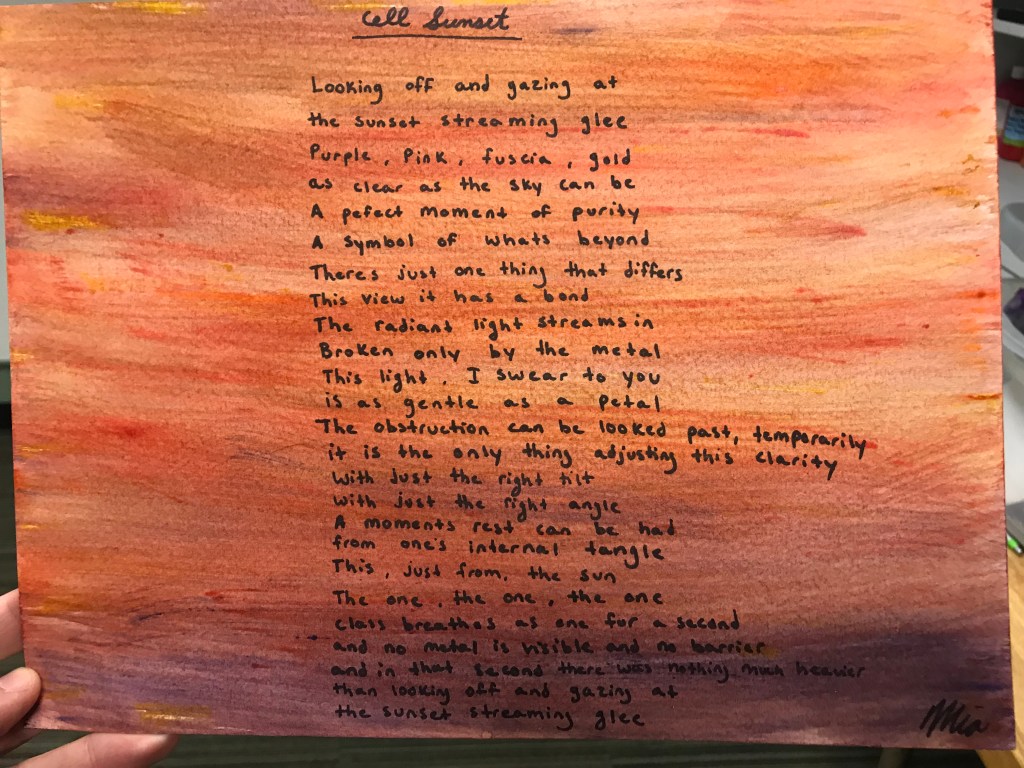 Cell Sunset
Looking off and gazing at
the sunset streaming glee
Purple, Pink, fuscia, gold
as clear as the sky can be
A pefect moment of purity
A symbol of whats beyond
Theres just one thing that differs
This view it has a bond
The radiant light streams in
Broken only by the metal
This light, I swear to you
is as gentle as a petal
The obstruction can be looked past, temporarily
it is the only thing adjusting this clarity
With just the right tilt
With just the right angle
A moments rest can be had
from one's internal tangle
This, just from, the sun
The one, the one, the one
class breathes as one for a second
and no metal is visible and no barrier
and in that second there was nothing much heavier
than looking off and gazing at
the sunset streaming glee